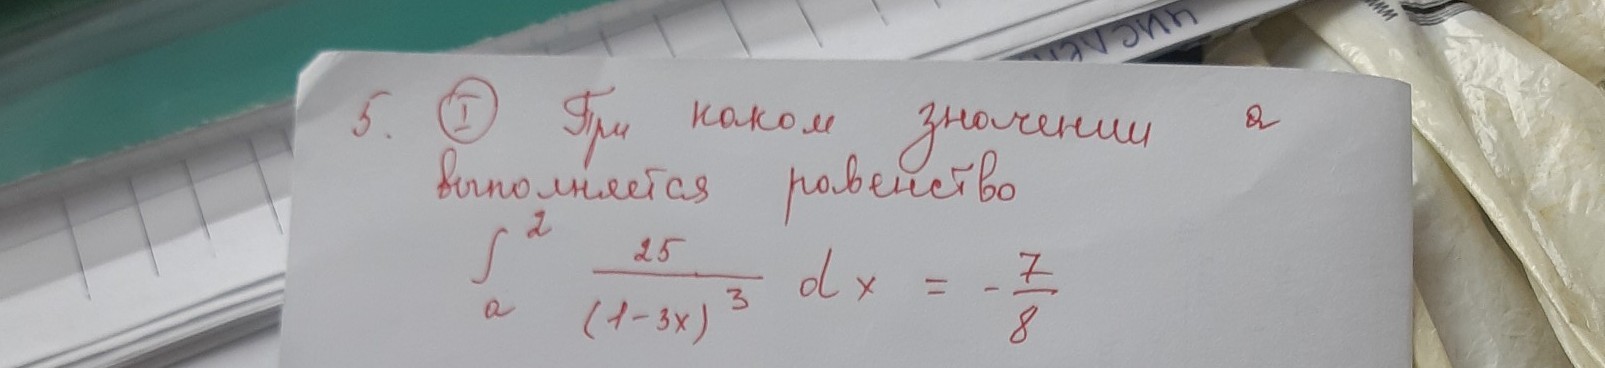 5. I При каком значении a
выполняется равенство
∫_a^2 25/(1-3x)^3 dx = -7/8